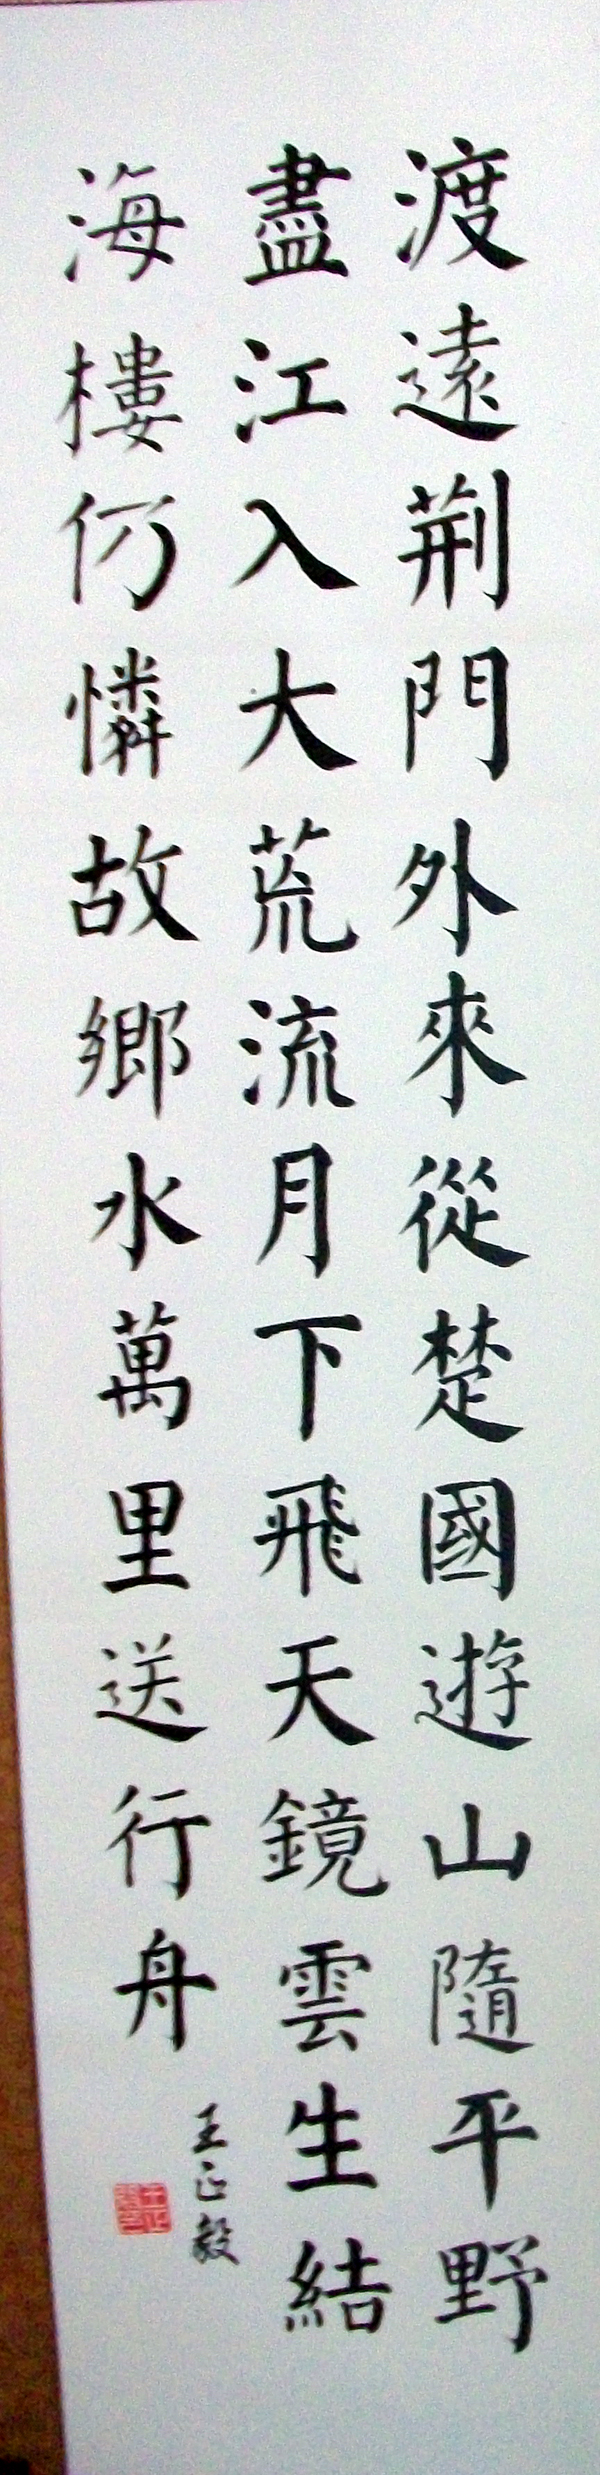 渡遠荊門外來從楚國遊山隨平野
盡江入大荒流月下飛天鏡雲生結
海樓仍憐故鄉水萬里送行舟
王正毅